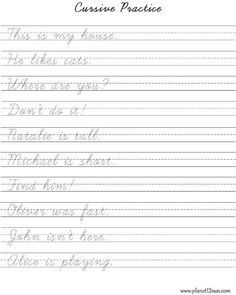 Cursive Practice
This is my house.
He likes cats.
Where are you?
Don't do it!
Natalie is tall.
Michael is short.
Find him!
Oliver was fast.
John isn't here.
Alice is playing.
www.planet12sun.com